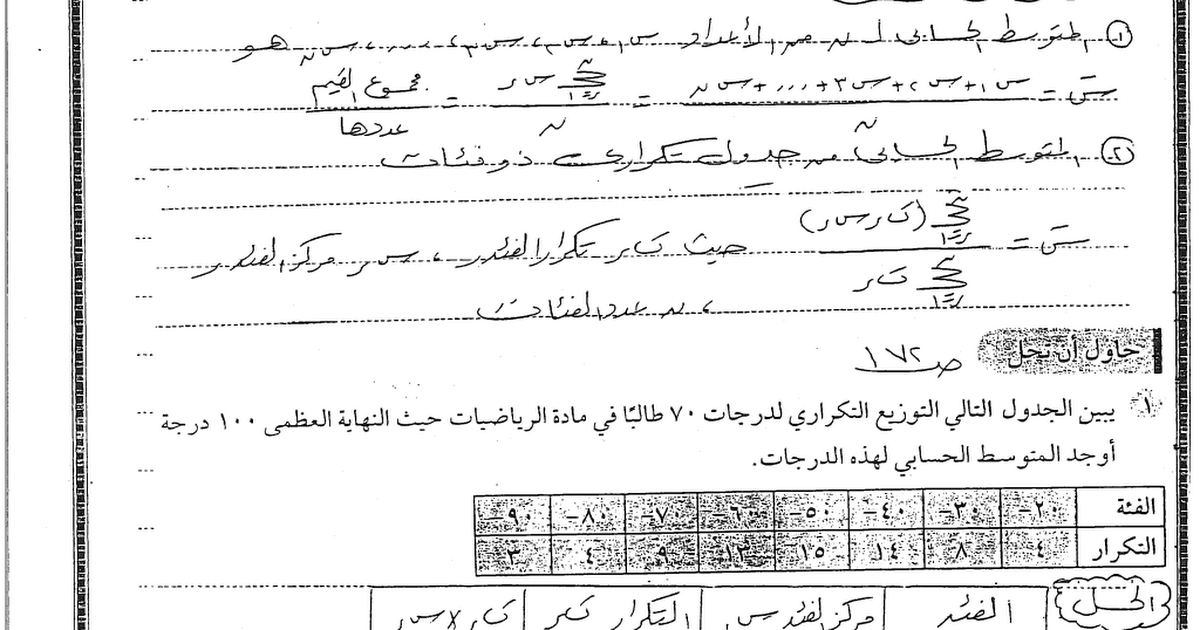 (١) المتوسط الحسابى لـ ن من الأعداد س١، س٢، س٣، ...، سن هو
سَ = س١ + س٢ + س٣ + ... + سن = ن مجـ ر=١ سر = مجموع القيم / عددها
(٢) المتوسط الحسابى من جدول تكرارى ذو فئات
سَ = ن مجـ ر=١ (كر سر) / ن مجـ ر=١ كر حيث كر تكرار الفئة ر، سر مركز الفئة ر
، ن عدد الفئات
حاول أن تحل ص ١٧٢
١ يبين الجدول التالي التوزيع التكراري لدرجات ٧٠ طالبًا في مادة الرياضيات حيث النهاية العظمى ١٠٠ درجة
أوجد المتوسط الحسابي لهذه الدرجات.
الفئة ٢٠- ٣٠- ٤٠- ٥٠- ٦٠- ٧- ٨٠- ٩٠-
التكرار ٤ ٨ ١٤ ١٥ ١٣ ٩ ٤ ٣
الحل الفئة مركز الفئة س التكرار كر كر × س